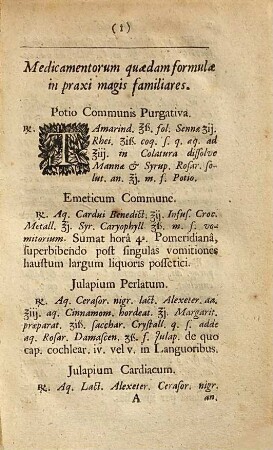 (1)
Medicamentorum quædam formulæ
in praxi magis familiares.
Potio Communis Purgativa.
℞. TAmarind. ℥ß. fol. Sennæ ʒij.
Rhei, ʒiß. coq. ſ. q. aq. ad
℥iij. in Colatura diſſolve
Mannæ & Syrup. Roſar. ſo-
lut. an. ℥j. m. f. Potio.
Emeticum Commune.
℞. Aq. Cardui Benedict. ℥ij. Infuſ. Croc.
Metall. ℥j. Syr. Caryophyll. ℥ß. m. f. vo-
mitorium. Sumat horâ 4ª. Pomeridianâ,
ſuperbibendo poſt ſingulas vomitiones
hauſtum largum liquoris poſſetici.
Julapium Perlatum.
℞. Aq. Ceraſor. nigr. lact. Alexeter. aa.
℥iij. aq. Cinnamom. hordeat. ℥j. Margarit.
præparat. ʒiß. ſacchar. Cryſtall. q. ſ. adde
aq. Roſar. Damaſcen. ʒß. f. Julap. de quo
cap. cochlear. iv. vel v. in Languoribus.
Julapium Cardiacum.
℞. Aq. Lact. Alexeter. Ceraſor. nigr.
A an.